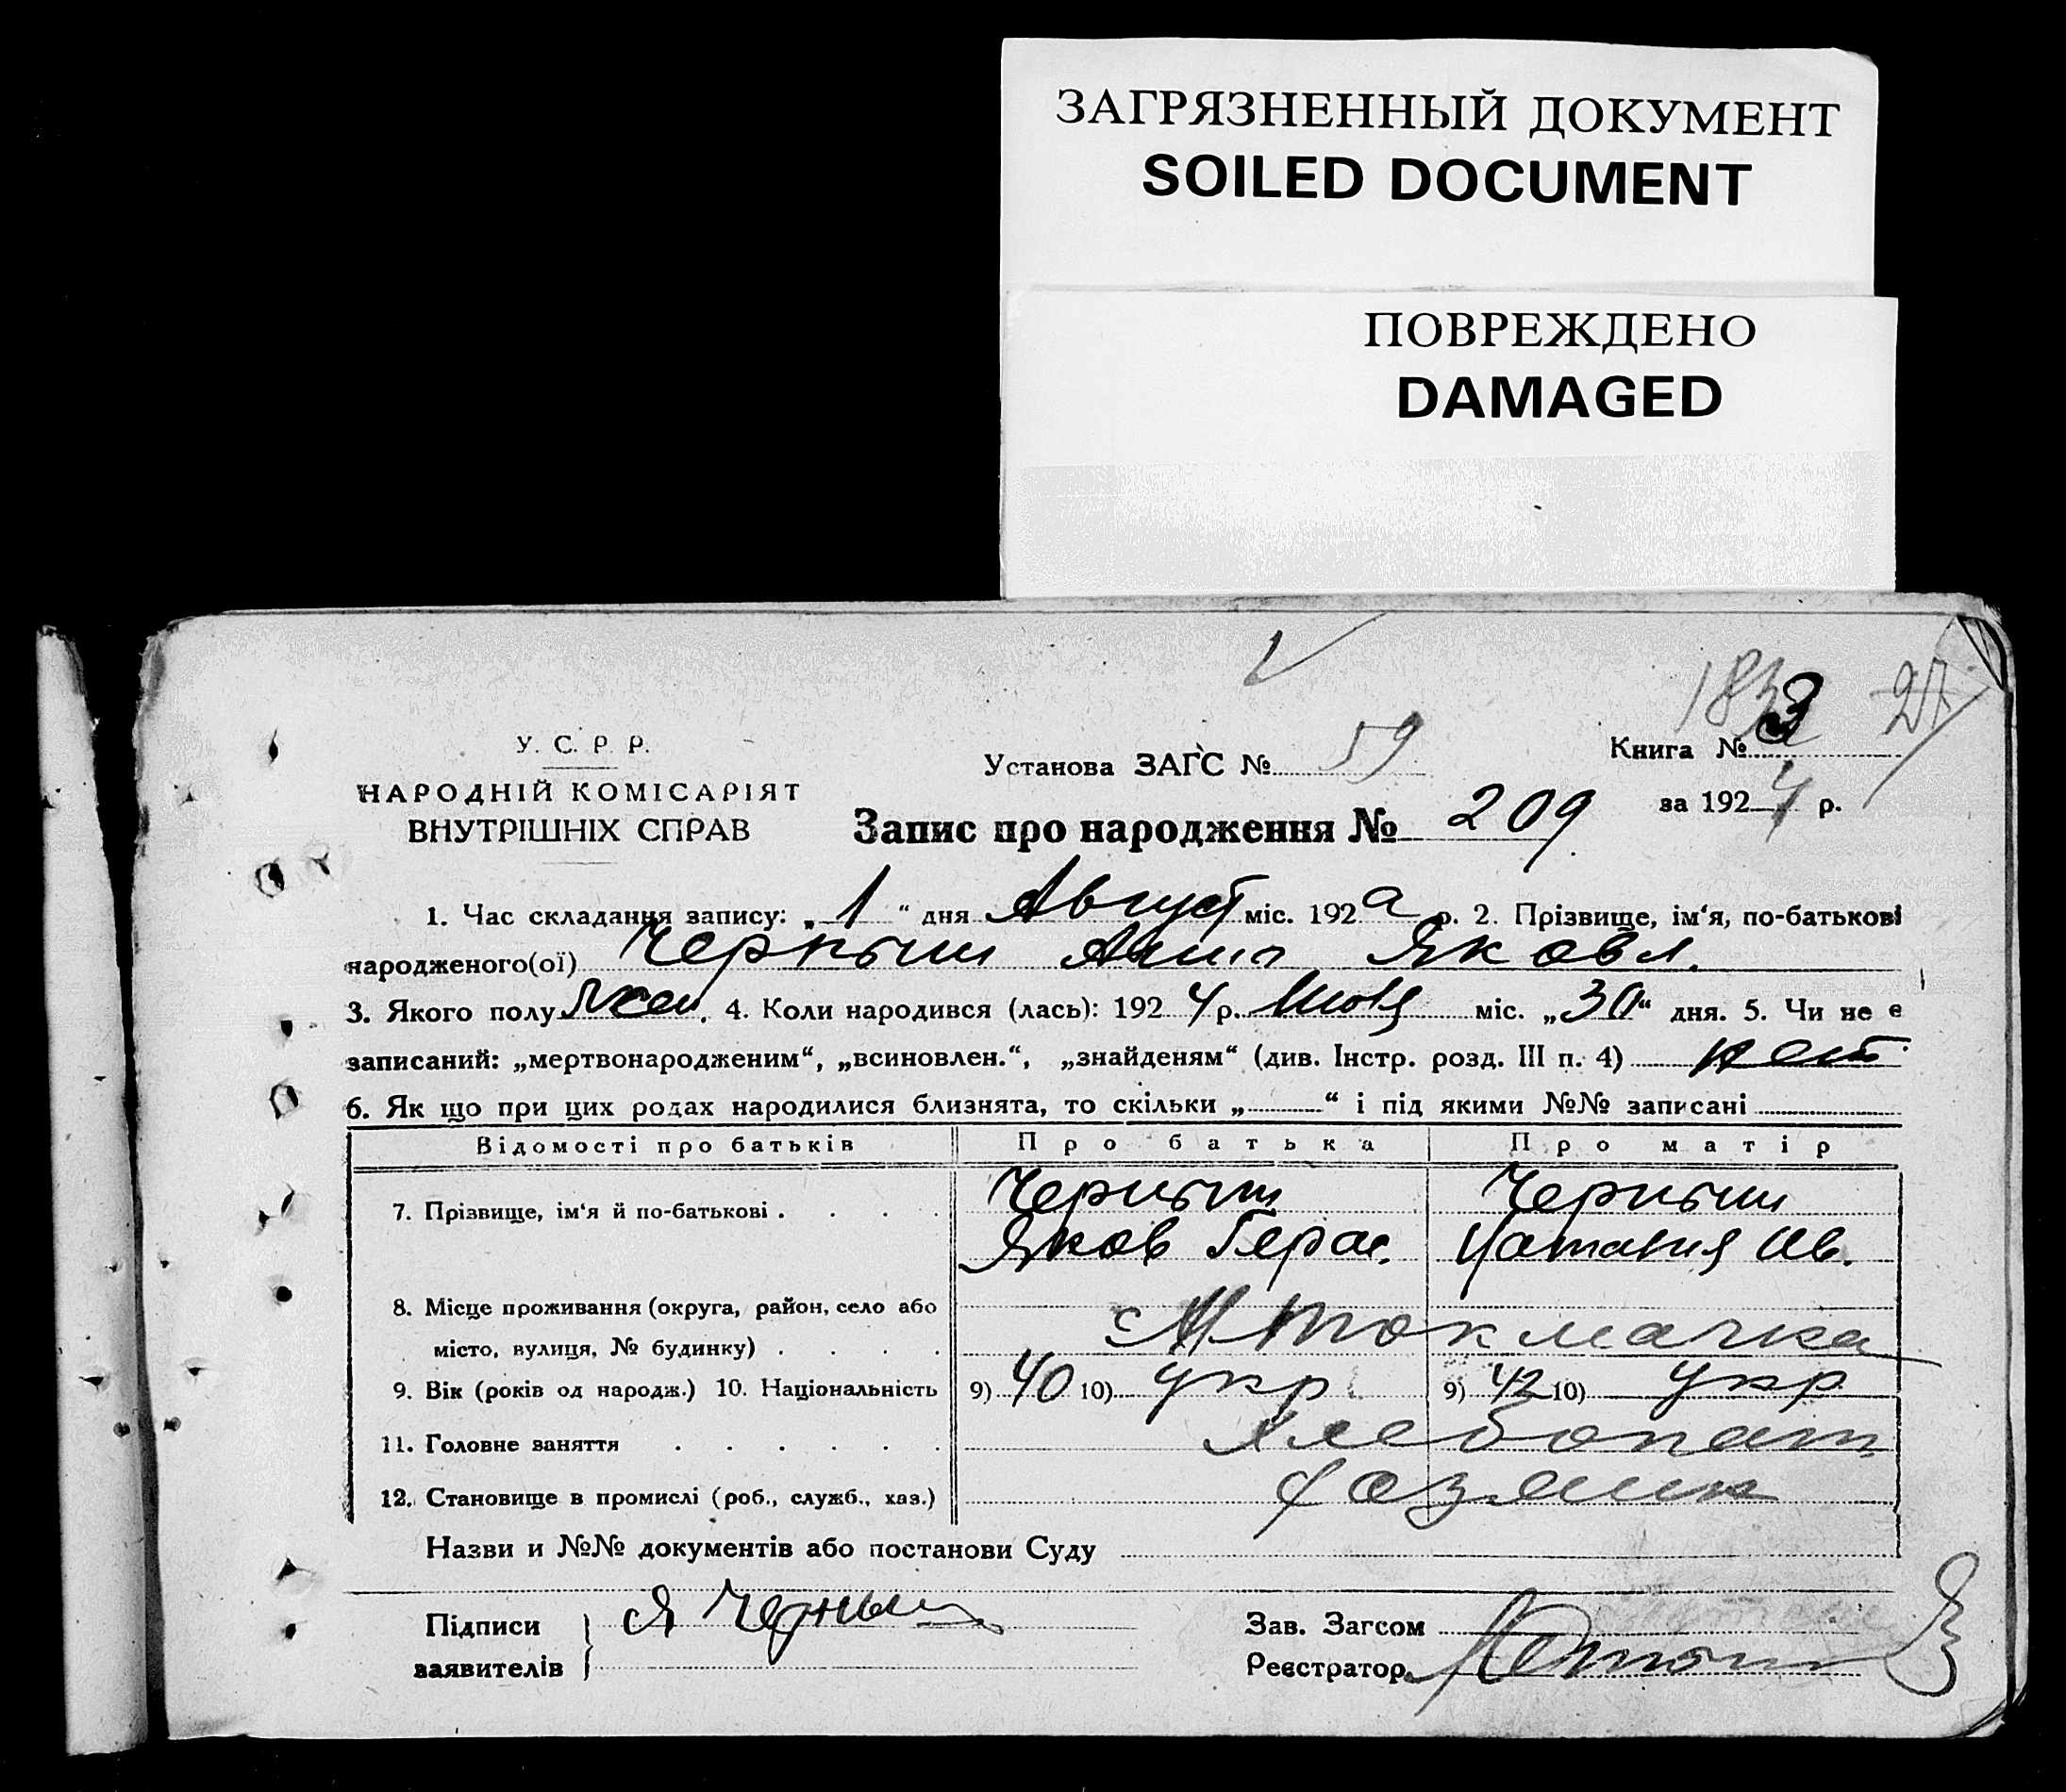 ЗАГРЯЗНЕННЫЙ ДОКУМЕНТ
SOILED DOCUMENT
ПОВРЕЖДЕНО
DAMAGED
27
У. С. Р. Р.
НАРОДНІЙ КОМІСАРІЯТ
ВНУТРІШНІХ СПРАВ
Установа ЗАГС № 59
Книга № 3
за 1924 р.
Запис про народження № 209
1. Час складання запису: „1“ дня Август міс. 192 р. 2. Прізвище, ім‘я, по-батькові
народженого(ої) Черныш Анна Яковл.
3. Якого полу жен. 4. Коли народився (лась): 1924 р. Июля міс. „30“ дня. 5. Чи не е
записаний: „мертвонародженим“, „всиновлен.“, „знайденям“ (див. Інстр. розд. III п. 4) нет
6. Як що при цих родах народилися близнята, то скільки „ “ і під якими №№ записані
Відомості про батьків Про батька Про матір
7. Прізвище, ім‘я й по-батькові . . . . Черныш Черныш
Яков Герас. Наталия Ив.
8. Місце проживання (округа, район, село або
місто, вулиця, № будинку) . . . . с М Токмачка
9. Вік (років од народж.) 10. Національність 9) 40 10) укр 9) 42 10) укр
11. Головне заняття . . . . . . Хлебопаш
12. Становище в промислі (роб., служб., хаз.) хозяин
Назви и №№ документів або постанови Суду
Підписи Я Черныш Зав. Загсом
заявителів Реєстратор